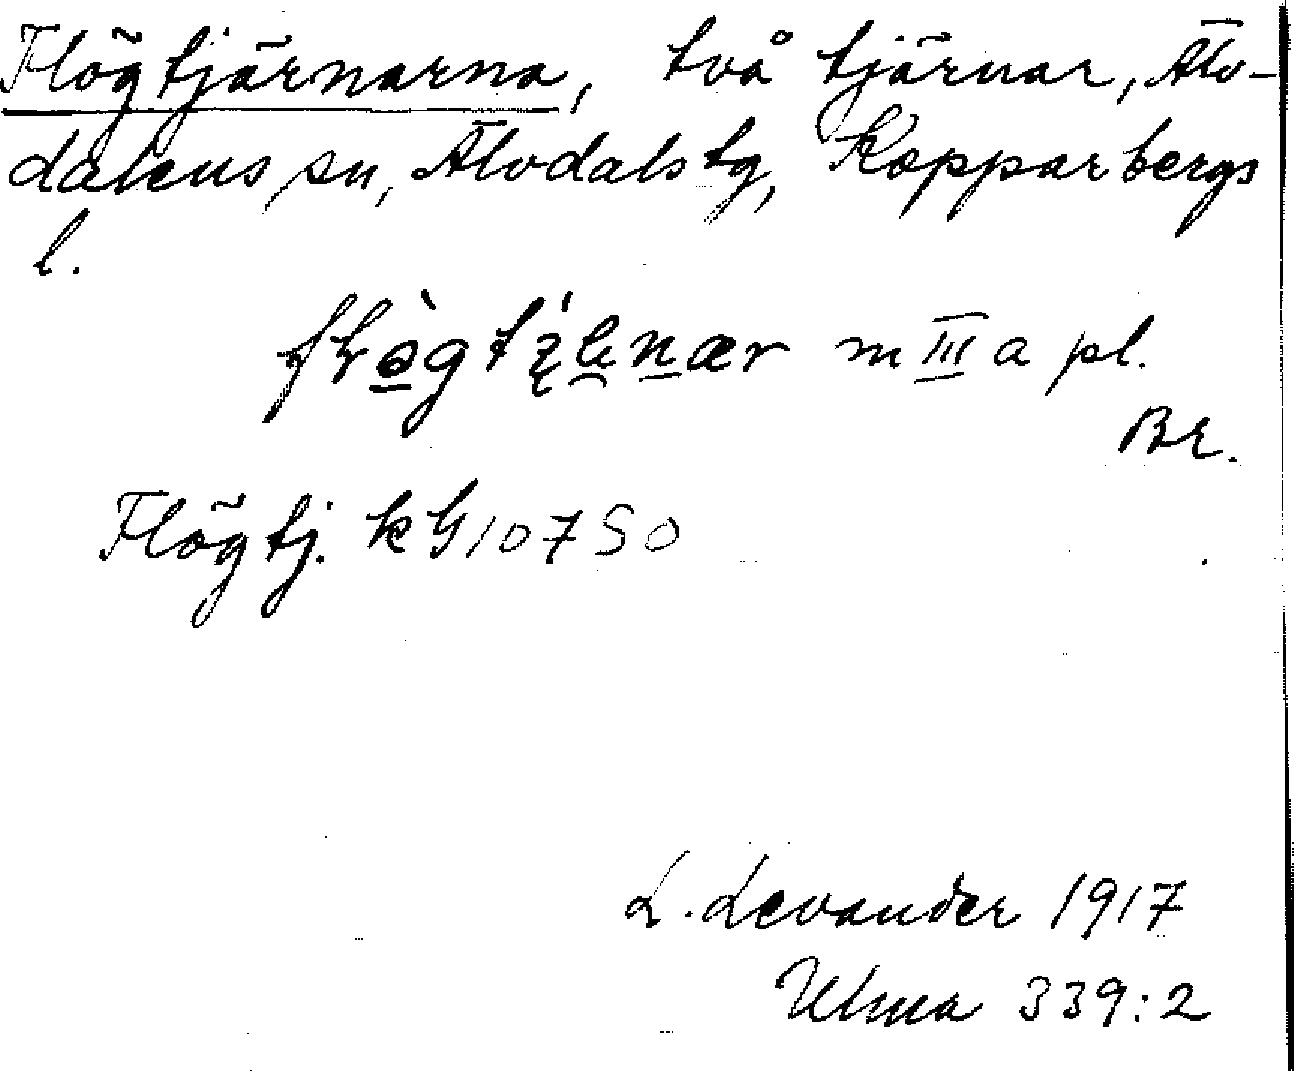 Flögtjärnarna, två tjärnar, Älv-
dalens sn, Älvdals tg, Kopparbergs
l.
m III a pl.
Br.
Flögtj. kG 10750
L. Levander 1917
Ulma 339:2